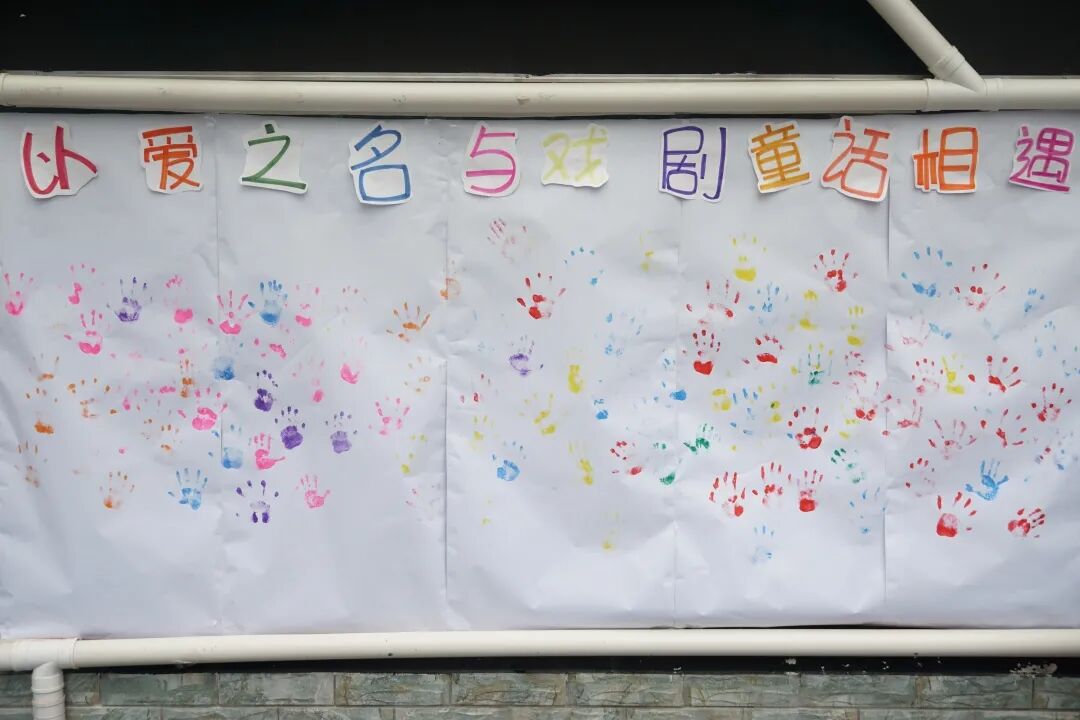 以爱之名与戏剧童话相遇